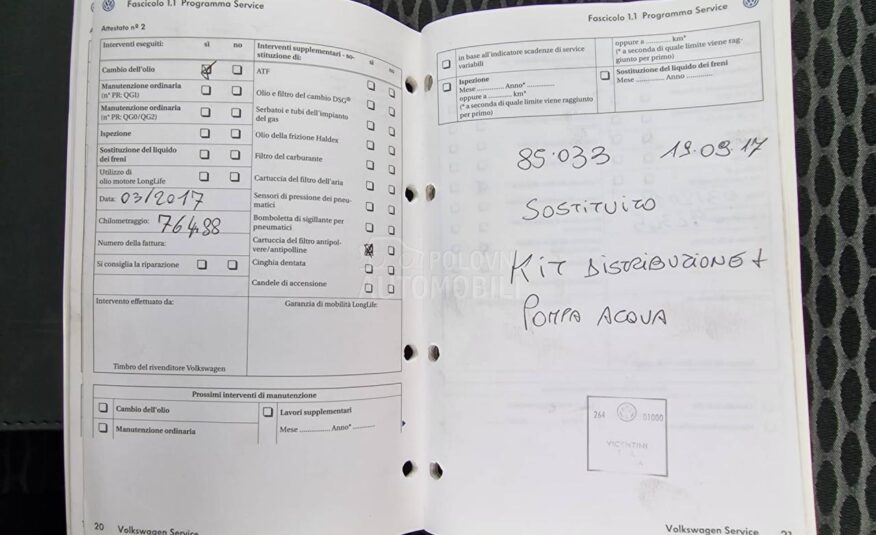 Fascicolo 1.1 Programma Service
Attestato nº 2
Interventi eseguiti:
sì
no
Cambio dell'olio
Manutenzione ordinaria
(nº PR: QG1)
Manutenzione ordinaria
(nº PR: QG0/QG2)
Ispezione
Sostituzione del liquido
dei freni
Utilizzo di
olio motore LongLife
Data: 03/2017
Chilometraggio: 76488
Numero della fattura:
Si consiglia la riparazione
Intervento effettuato da:
Timbro del rivenditore Volkswagen
Interventi supplementari - so-
stituzione di:
sì
no
ATF
Olio e filtro del cambio DSG®
Serbatoi e tubi dell'impianto
del gas
Olio della frizione Haldex
Filtro del carburante
Cartuccia del filtro dell'aria
Sensori di pressione dei pneu-
matici
Bomboletta di sigillante per
pneumatici
Cartuccia del filtro antipol-
vere/antipolline
Cinghia dentata
Candele di accensione
Garanzia di mobilità LongLife:
Prossimi interventi di manutenzione
Cambio dell'olio
Manutenzione ordinaria
Lavori supplementari
Mese ............ Anno* ............
20 Volkswagen Service
Fascicolo 1.1 Programma Service
in base all'indicatore scadenze di service
variabili
Ispezione
Mese ............ Anno* ............
oppure a ............ km*
(* a seconda di quale limite viene raggiunto
per primo)
oppure a ............ km*
(* a seconda di quale limite viene rag-
giunto per primo)
Sostituzione del liquido dei freni
Mese ............ Anno ............
85.033 19.09.17
SOSTITUITO
KIT DISTRIBUZIONE +
POMPA ACQUA
264 01000
VICENTINI
POLOVNI
AUTOMOBILI
Volkswagen Service 21